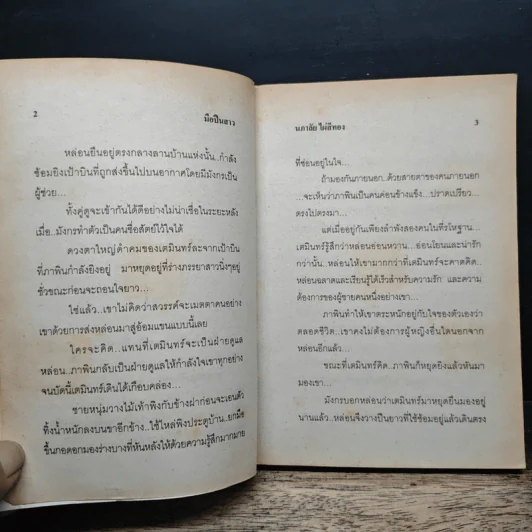 2
มือปืนสาว
หล่อนยืนอยู่ตรงกลางลานบ้านแห่งนั้น..กำลัง
ซ้อมยิงเป้าบินที่ถูกส่งขึ้นไปบนอากาศโดยมีมังกรเป็น
ผู้ช่วย...
ทั้งคู่ดูจะเข้ากันได้ดีอย่างไม่น่าเชื่อในระยะหลัง
เมื่อ..มังกรทำตัวเป็นคนซื่อสัตย์ไว้ใจได้
ดวงตาใหญ่ดำคมของเตมินทร์ละจากเป้าบิน
ที่ภาพินกำลังยิงอยู่ มาหยุดอยู่ที่ร่างภรรยาสาวนิ่งๆอยู่
ชั่วขณะก่อนจะถอนใจยาว...
ใช่แล้ว..เขาไม่คิดว่าสวรรค์จะเมตตาคนอย่าง
เขาด้วยการส่งหล่อนมาสู่อ้อมแขนแบบนี้เลย
ใครจะคิด...แทนที่เตมินทร์จะเป็นฝ่ายดูแล
หล่อน..ภาพินกลับเป็นฝ่ายดูแลให้กำลังใจเขาทุกอย่าง
จนบัดนี้เตมินทร์เดินได้เกือบคล่อง...
ชายหนุ่มวางไม้เท้าพิงกับข้างฝาก่อนจะเอนตัว
ทิ้งน้ำหนักลงบนขาอีกข้าง..ใช้ไหล่พิงประตูบ้าน..ยกมือ
ขึ้นกอดอกมองร่างบางที่หันหลังให้ด้วยความรู้สึกมากมาย
นภาลัย ไผ่สีทอง
3
ที่ซ่อนอยู่ในใจ...
ถ้ามองกันภายนอก..ด้วยสายตาของคนภายนอก
...จะเห็นว่าภาพินเป็นคนค่อนข้างแข็ง...ปราดเปรียว...
ตรงไปตรงมา...
แต่เมื่ออยู่กันเพียงลำพังสองคนในที่รโหฐาน...
เตมินทร์รู้สึกว่าหล่อนอ่อนหวาน...อ่อนโยนและน่ารัก
กว่านั้น..หล่อนให้เขามากกว่าที่เตมินทร์จะคาดคิด..
หล่อนฉลาดและเรียนรู้ได้เร็วสำหรับความรัก และความ
ต้องการของผู้ชายคนหนึ่งอย่างเขา...
ภาพินทำให้เขาตระหนักอยู่กับใจของตัวเองว่า
ตลอดชีวิต...เขาคงไม่ต้องการผู้หญิงอื่นใดนอกจาก
หล่อนอีกแล้ว...
ขณะที่เตมินทร์คิด..ภาพินก็หยุดยิงแล้วหันมา
มองเขา...
มังกรบอกหล่อนว่าเตมินทร์มาหยุดยืนมองอยู่
นานแล้ว..หล่อนจึงวางปืนยาวที่ใช้ซ้อมอยู่แล้วเดินตรง